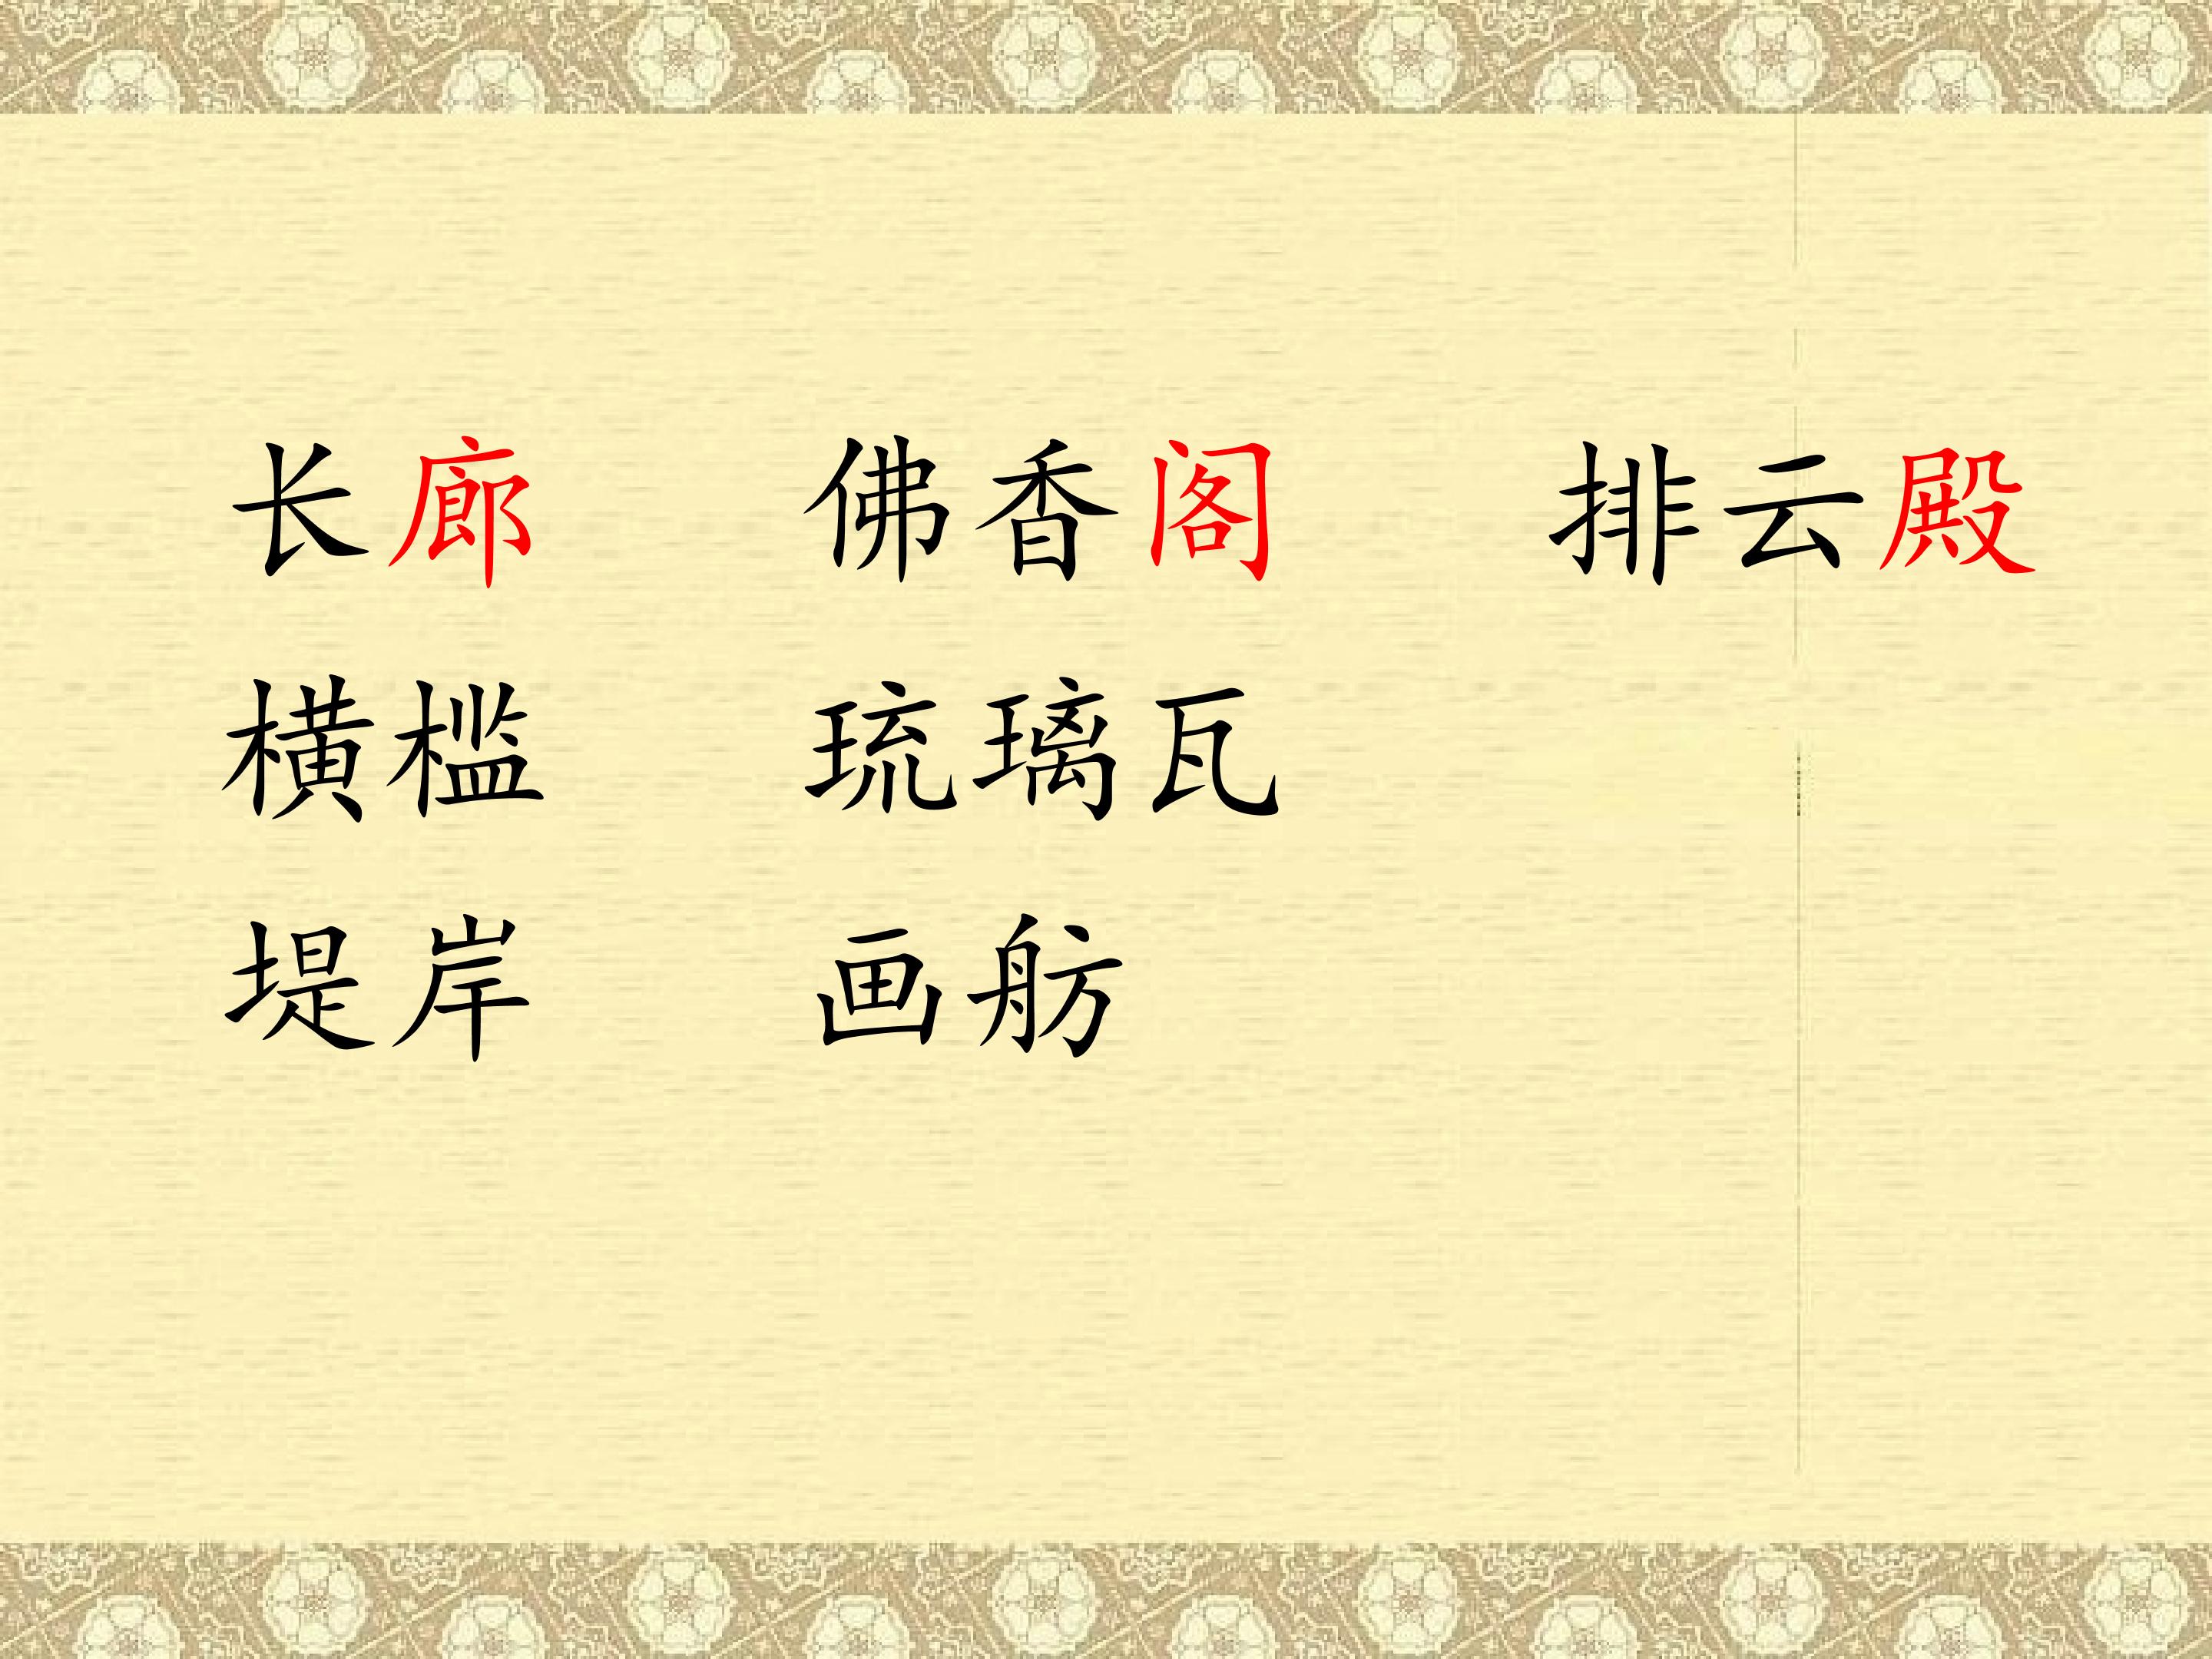 长廊 佛香阁 排云殿
横槛 琉璃瓦
堤岸 画舫